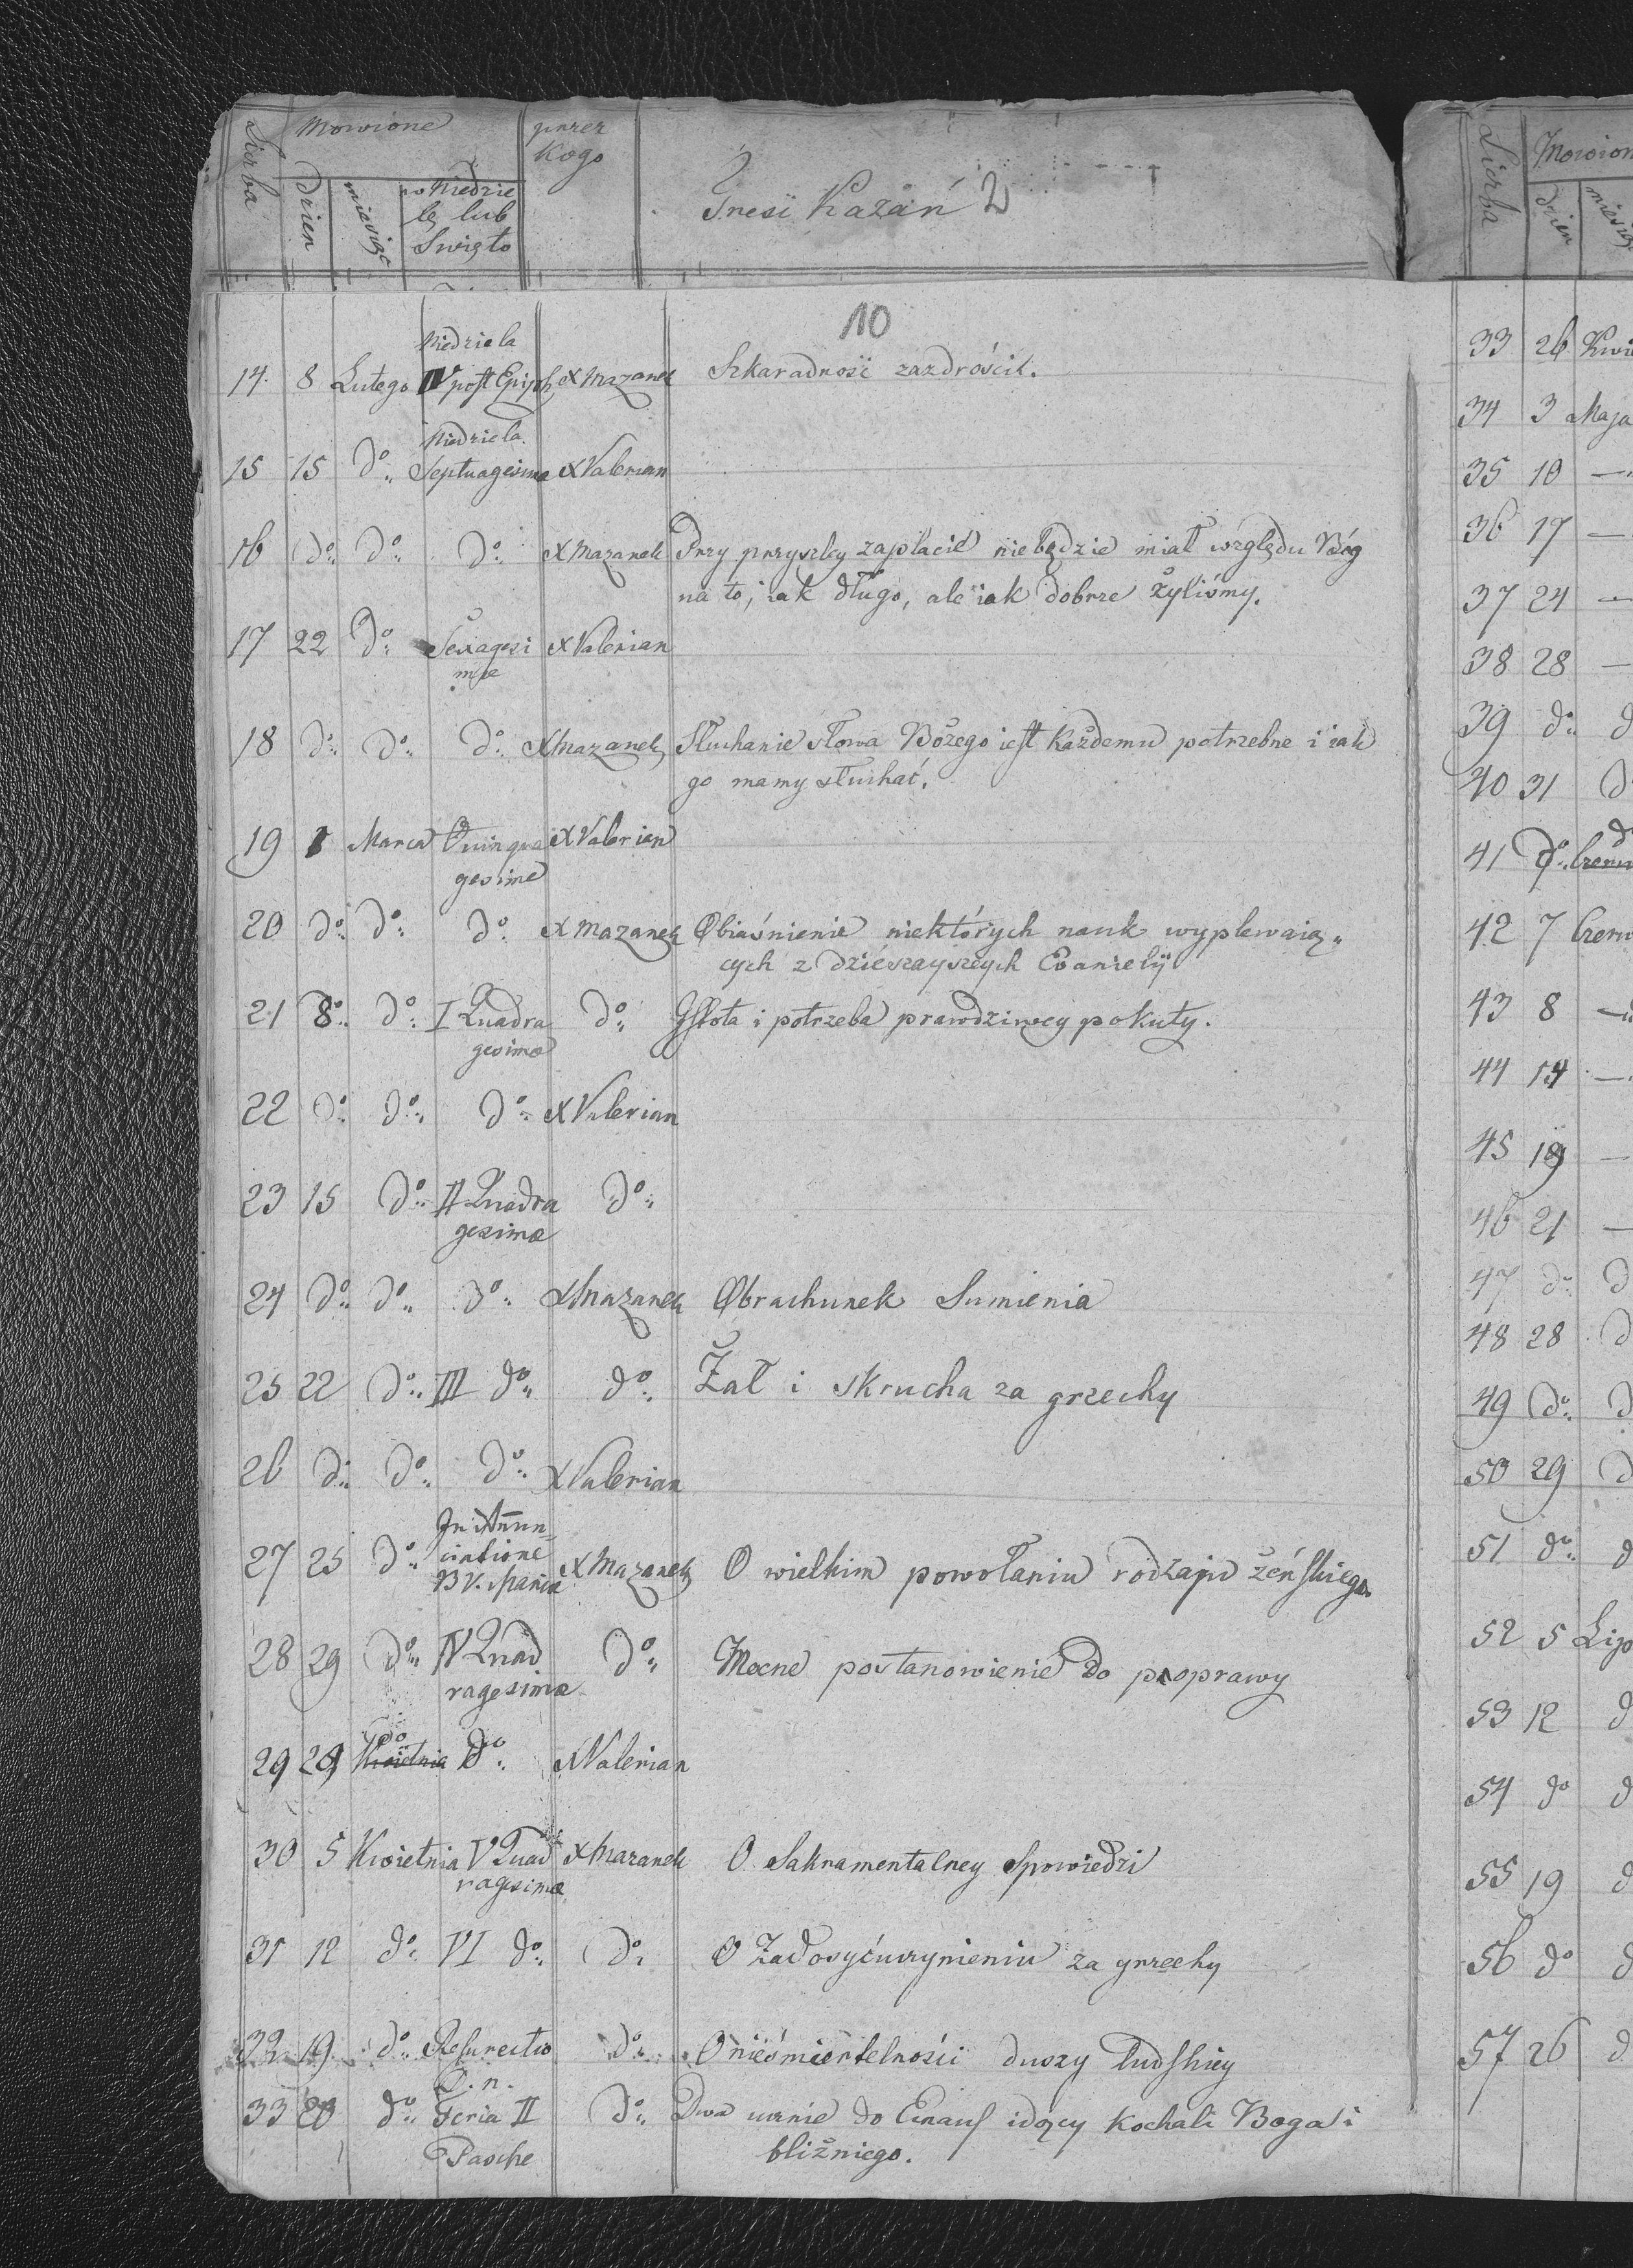 Liczba Mowione przez
Kogo
Dzien miesiąc w Niedzie
lę lub
Swięto
Tresć Kazań 2
10
Niedziela
14. 8 Lutego IV post Epiph. X Mazanek Szkaradność zazdrości.
Niedziela
15 15 do Septuagesima X Valerian
16 do do do X Mazanek Przy przyszłey zapłacie niebędzie miał względu Bóg
na to, iak długo, ale iak dobrze żyliśmy.
17 22 do Sexagesi X Valerian
mae
18 do do do X Mazanek Słuchanie słowa Bożego iest każdemu potrzebne i iak
go mamy słuchać.
19 1 Marca Quinqua X Valerian
gesime
20 do do do X Mazanek Obiaśnienie niektórych nauk wypływaią„
cych z dzieszayszych Ewanielij
21 8 do I Quadra do Istota i potrzeba prawdziwey pokuty.
gesimae
22 do do do X Valerian
23 15 do II Quadra do
gesimae
24 do do do X Mazanek Obrachunek Sumienia
25 22 do III do do Żal i skrucha za grzechy
26 do do do X Valerian
In Annun
27 25 do ciatione X Mazanek O wielkim powołaniu rodzaju żeńskiego
BV. Mariae
28 29 do IV Quad do Mocne postanowienie do poprawy
ragesimae
do
29 29 Kwietnia do X Valerian
30 5 Kwietnia V Quad X Mazanek O Sakramentalney Spowiedzi
ragesimae
31 12 do VI do do O Zadosyćuczynieniu za grzechy
32 19 do Resurectio do O nieśmiertelności duszy ludskiey
D. n.
33 20 do Feria II do Dwa ucznie do Emaus idący kochali Boga i
Pasche bliźniego.
Liczba Mowion
dzien miesią
33 26 Kwi
34 3 Maja
35 10 —
36 17 —
37 24 —
38 28 —
39 do d
40 31 d
d
41 do Czerw
42 7 Czerw
43 8 —
44 14 —
45 19 —
46 21 —
47 do d
48 28 d
49 do d
50 29 d
51 do d
52 5 Lip
53 12 d
54 do d
55 19 d
56 do d
57 26 d